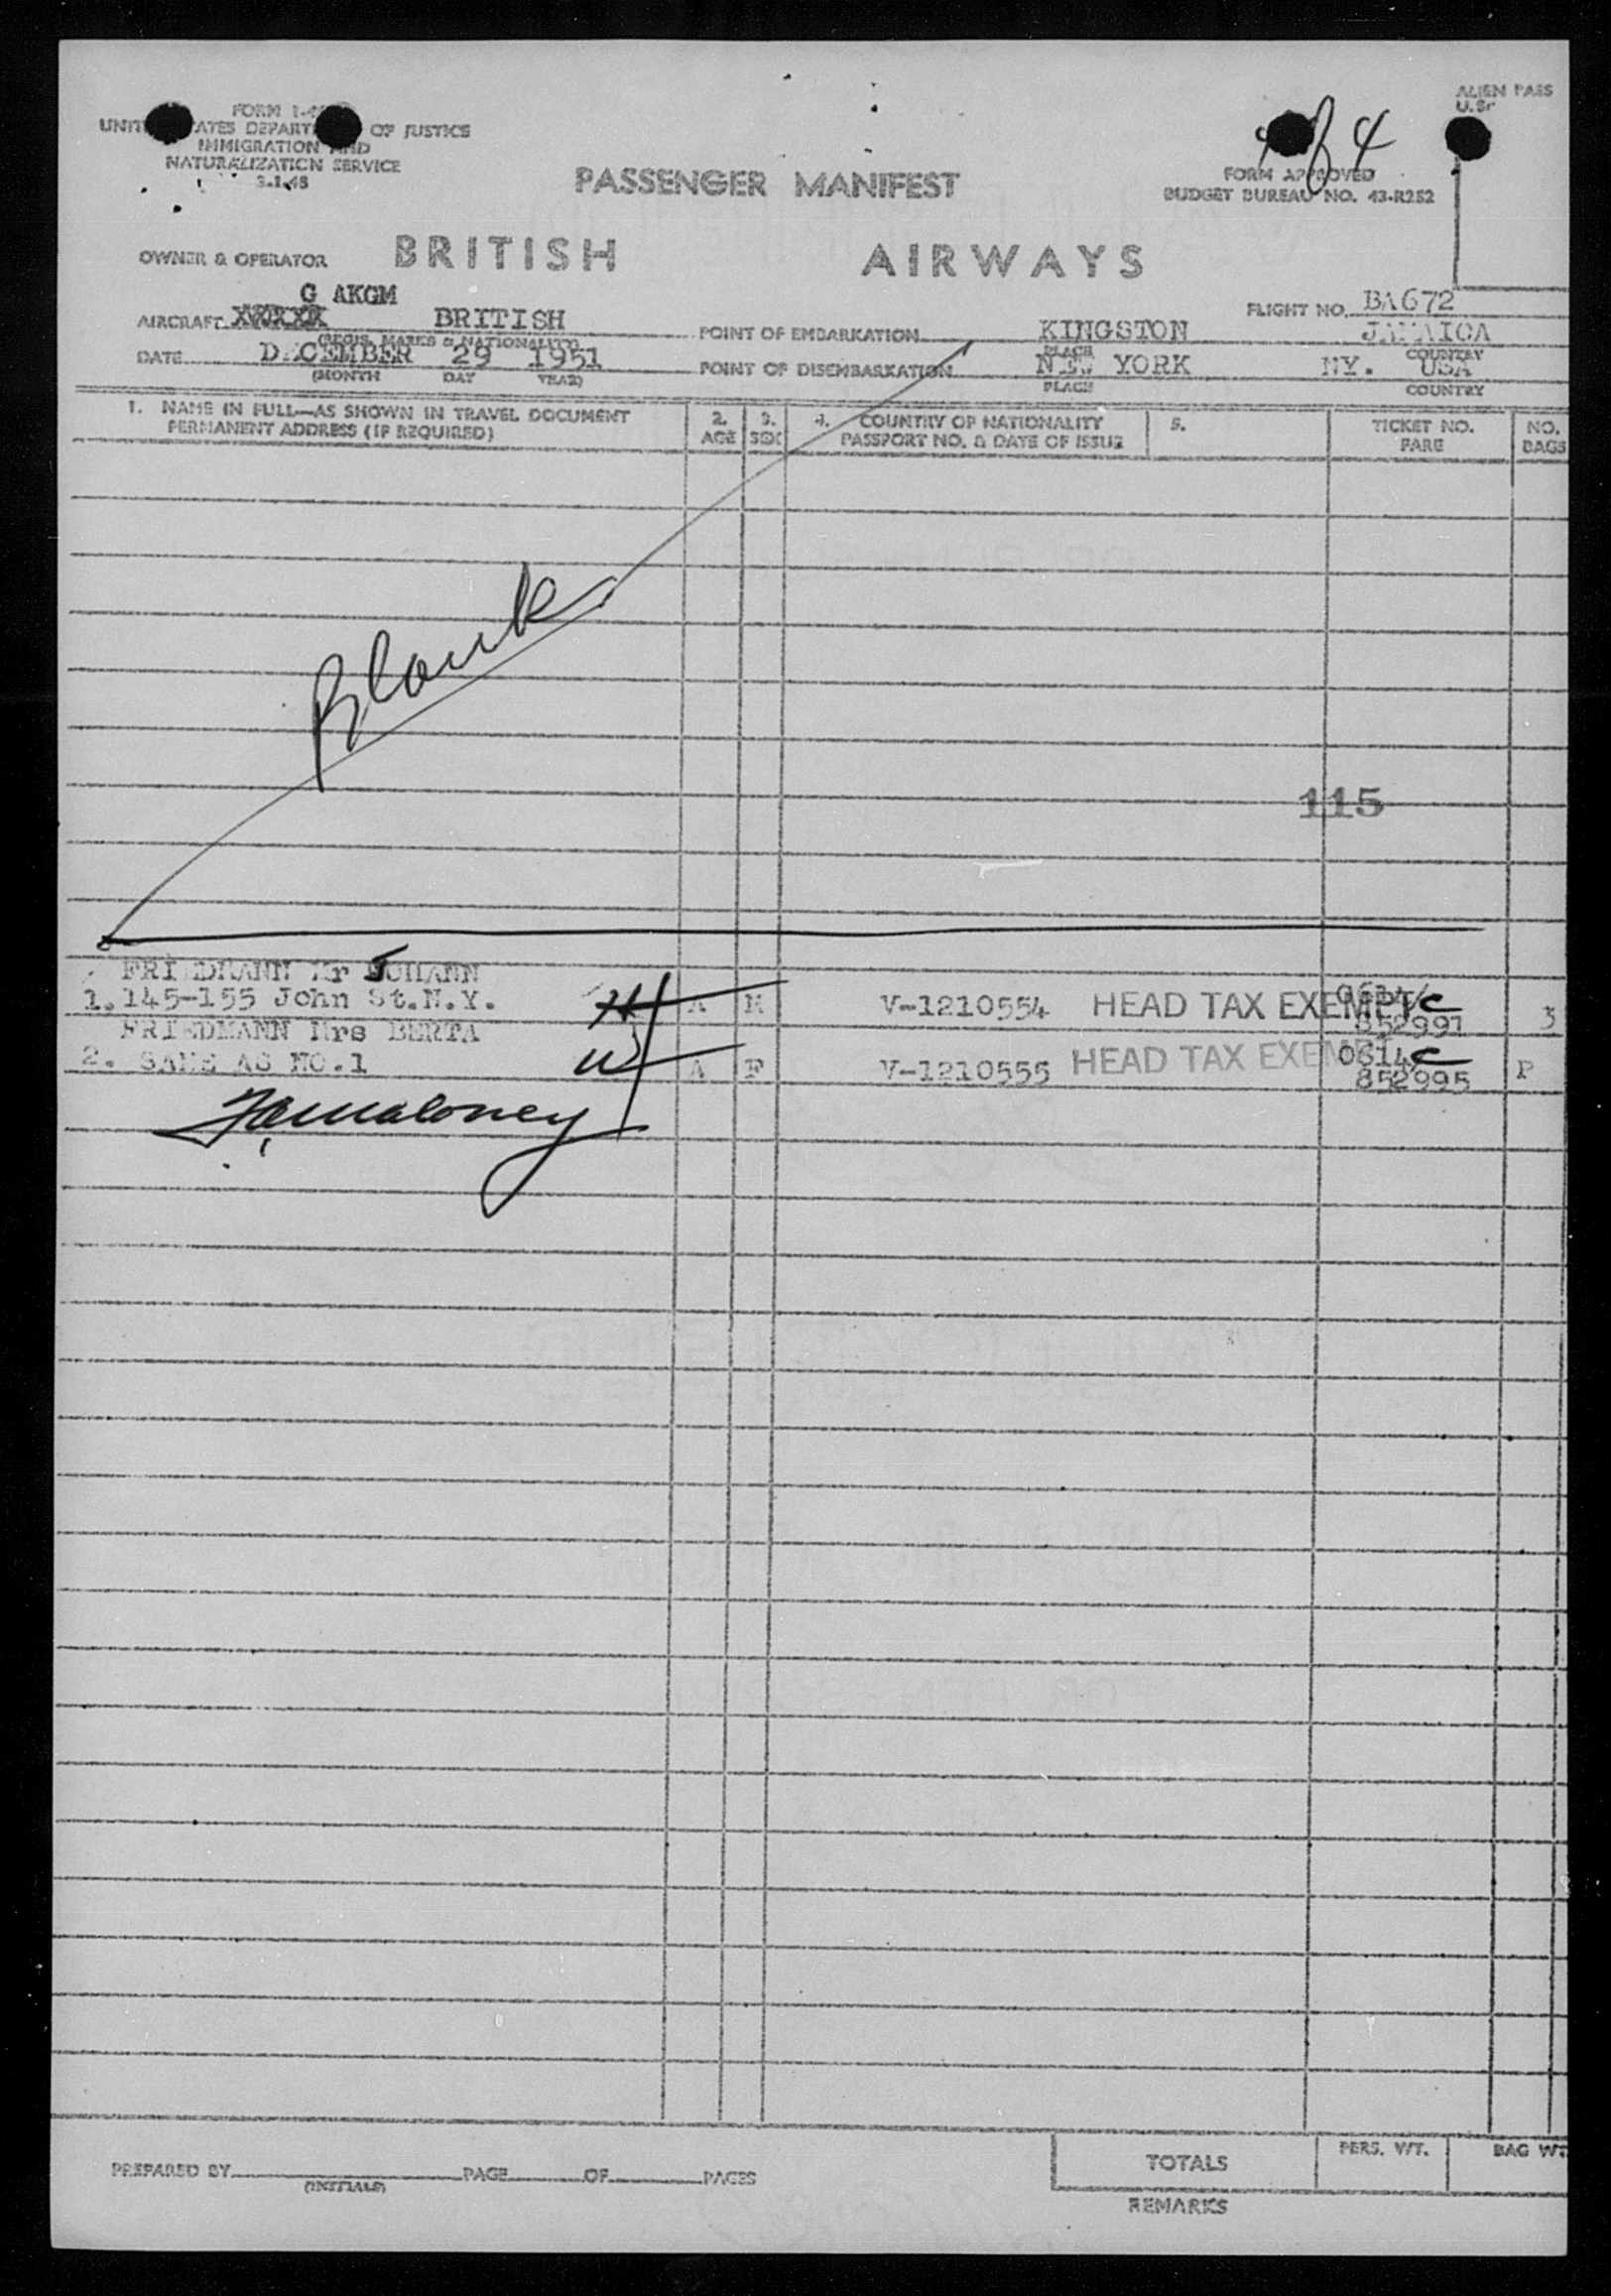 FORM I-4
ALIEN PASS
UNIT ATES DEPART OF JUSTICE
U.S.
IMMIGRATION AND
NATURALIZATION SERVICE
3-1-48
PASSENGER MANIFEST
84
FORM APPROVED
BUDGET BUREAU NO. 43-R252
OWNER & OPERATOR BRITISH AIRWAYS
G AKGM
FLIGHT NO. BA672
AIRCRAFT XXXXX BRITISH POINT OF EMBARKATION KINGSTON JAMAICA
(REGIS. MARKS & NATIONALITY) PLACE COUNTRY
DATE DECEMBER 29 1951 POINT OF DISEMBARKATION NEW YORK NY. USA
(MONTH DAY YEAR) PLACE COUNTRY
1. NAME IN FULL—AS SHOWN IN TRAVEL DOCUMENT 2. 3. 4. COUNTRY OF NATIONALITY 5. TICKET NO. NO.
PERMANENT ADDRESS (IF REQUIRED) AGE SEX PASSPORT NO. & DATE OF ISSUE FARE BAGS
Blank
115
FRIEDMANN Mr JOHANN
1. 145-155 John St. N.Y. A M V-1210554 HEAD TAX EXEMPT 0614/C 3
852991
FRIEDMANN Mrs BERTA
2. SAME AS NO.1 A F V-1210555 HEAD TAX EXEMPT 0614 C P
852995
Maloney
PREPARED BY PAGE OF PAGES TOTALS PERS. WT. BAG WT.
(INITIALS)
REMARKS